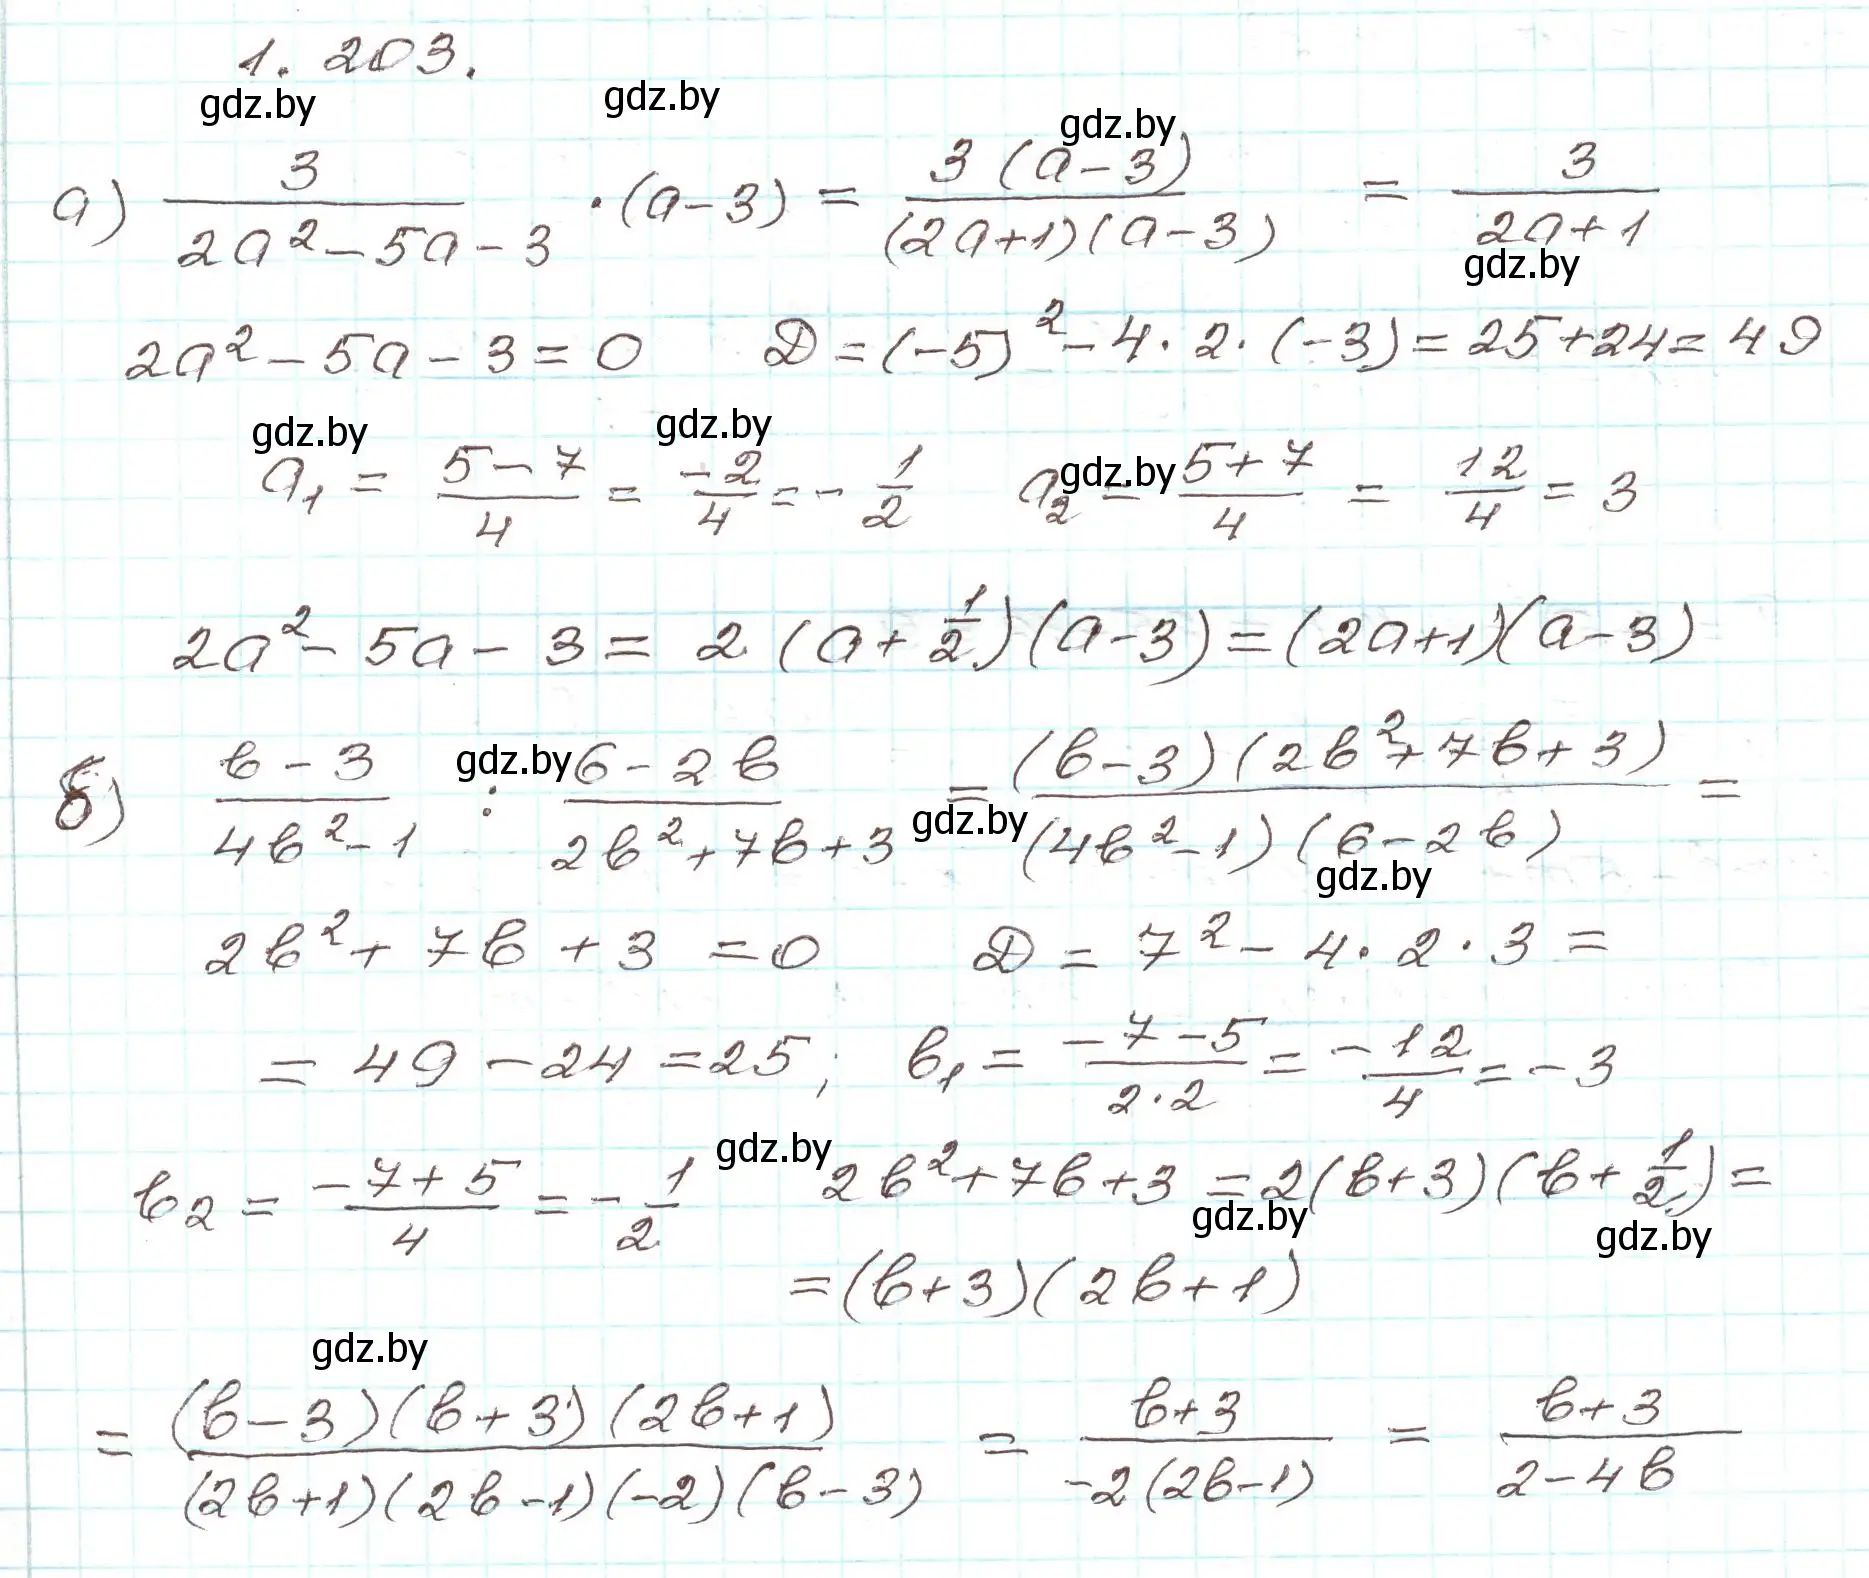 1.203.
gdz.by gdz.by gdz.by
а) 3/(2a² - 5a - 3) · (a - 3) = 3(a - 3)/((2a+1)(a-3)) = 3/(2a+1)
gdz.by
2a² - 5a - 3 = 0 D = (-5)² - 4 · 2 · (-3) = 25 + 24 = 49
gdz.by gdz.by gdz.by
a₁ = (5 - 7)/4 = -2/4 = - 1/2 a₂ = (5 + 7)/4 = 12/4 = 3
2a² - 5a - 3 = 2(a + 1/2)(a - 3) = (2a+1)(a - 3)
б) (b - 3)/(4b² - 1) : (6 - 2b)/(2b² + 7b + 3) = (b - 3)(2b² + 7b + 3)/((4b² - 1)(6 - 2b)) =
gdz.by gdz.by gdz.by
2b² + 7b + 3 = 0 D = 7² - 4 · 2 · 3 =
= 49 - 24 = 25; b₁ = (-7 - 5)/(2 · 2) = -12/4 = -3
b₂ = (-7 + 5)/4 = - 1/2 gdz.by 2b² + 7b + 3 = 2(b + 3)(b + 1/2) =
gdz.by gdz.by
= (b + 3)(2b + 1)
gdz.by
= (b - 3)(b + 3)(2b + 1)/((2b + 1)(2b - 1)(-2)(b - 3)) = (b + 3)/(-2(2b - 1)) = (b + 3)/(2 - 4b)